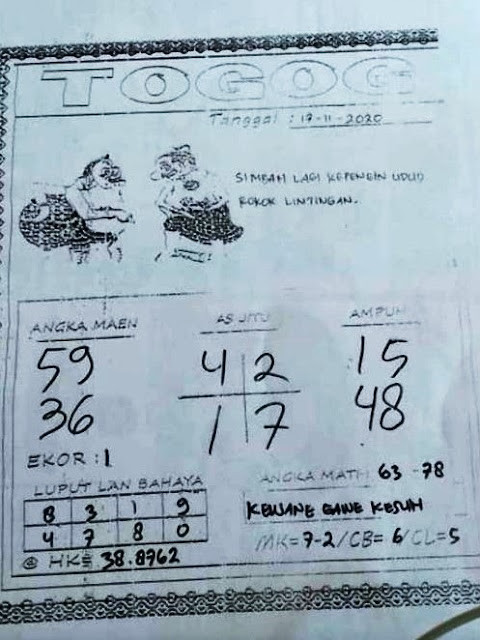 TOGOG
Tanggal : 17-11-2020
SIMBAH LAGI KEPENGIN UDUD
ROKOK LINTINGAN.
ANGKA MAEN
59
36
EKOR : 1
AS JITU
4 2
1 7
AMPUH
15
48
LUPUT LAN BAHAYA
8 3 1 9
4 7 8 0
@ HK= 38.8962
ANGKA MATI 63 - 78
KEWANE GAWE KESUH
MK= 7-2 / CB= 6 / CL= 5